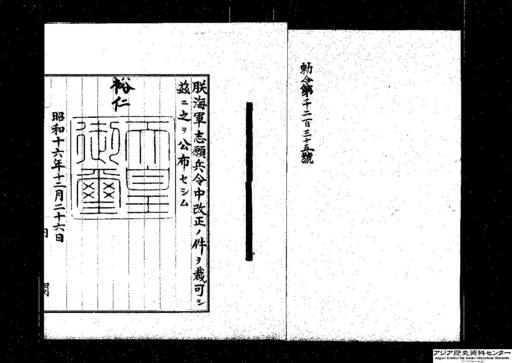 勅令第千二百三十五號
朕海軍志願兵令中改正ノ件ヲ裁可シ
茲ニ之ヲ公布セシム
裕仁
天皇御璽
昭和十六年十二月二十六日
内 閣
アジア歴史資料センター
Japan Center for Asian Historical Records